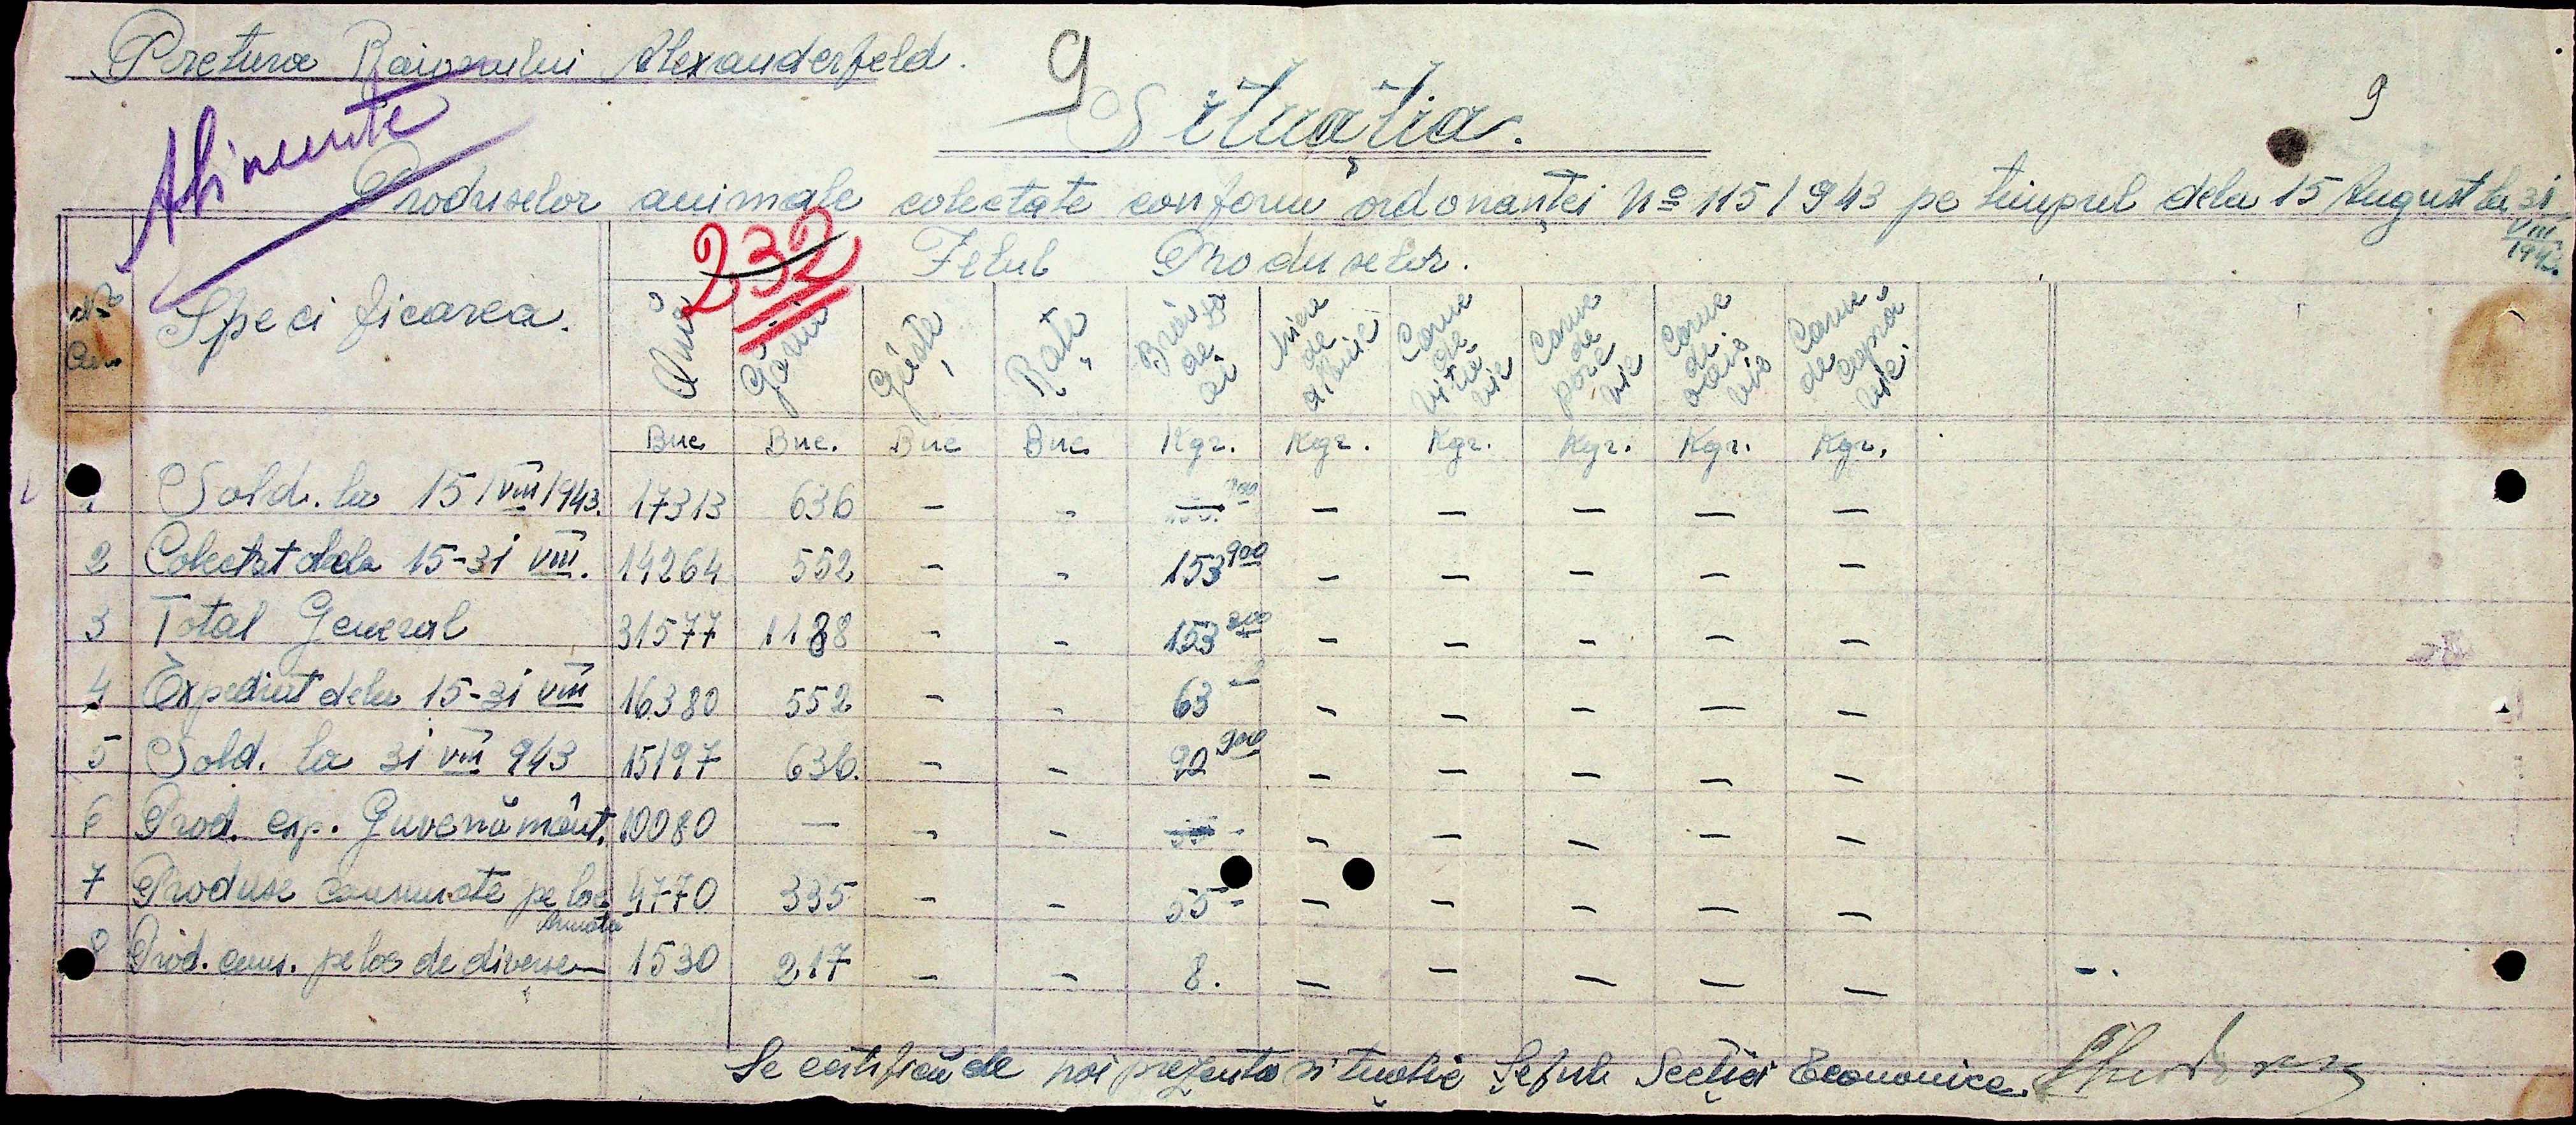 Pretura Raionului Alexanderfeld.
9
9
Situația.
Alimente
Produselor animale colectate conform ordonanței No 115/943 pe timpul dela 15 August la 31 VIII 1943
232
No Crt. Specificarea. Felul Produselor.
Ouă Găini Gâște Rațe Brânză de oi Miere de albine Carne de vită vie Carne de porc vie Carne de oaie vie Carne de capră vie
Buc. Buc. Buc Buc. Kgr. Kgr. Kgr. Kgr. Kgr. Kgr.
1 Sold. la 15/VIII/943. 17313 636 - - - - - - -
2 Colectat dela 15-31 VIII. 14264 552 - - 153 900 - - - - -
3 Total General 31577 1188 - - 153 900 - - - - -
4 Expediat dela 15-31 VIII 16380 552 - - 63 - - - - - -
5 Sold. la 31 VIII 943 15197 636. - - 90 900 - - - - -
6 Prod. exp. Guvernământ. 10080 - - - - - - - - -
7 Produse consumate pe loc Armata 4770 335 - - 55 - - - - - -
8 Prod. cons. pe loc de diverse 1530 217 - - 8. - - - - -
Se certifică de noi prezenta situație Șeful Secției Economice.